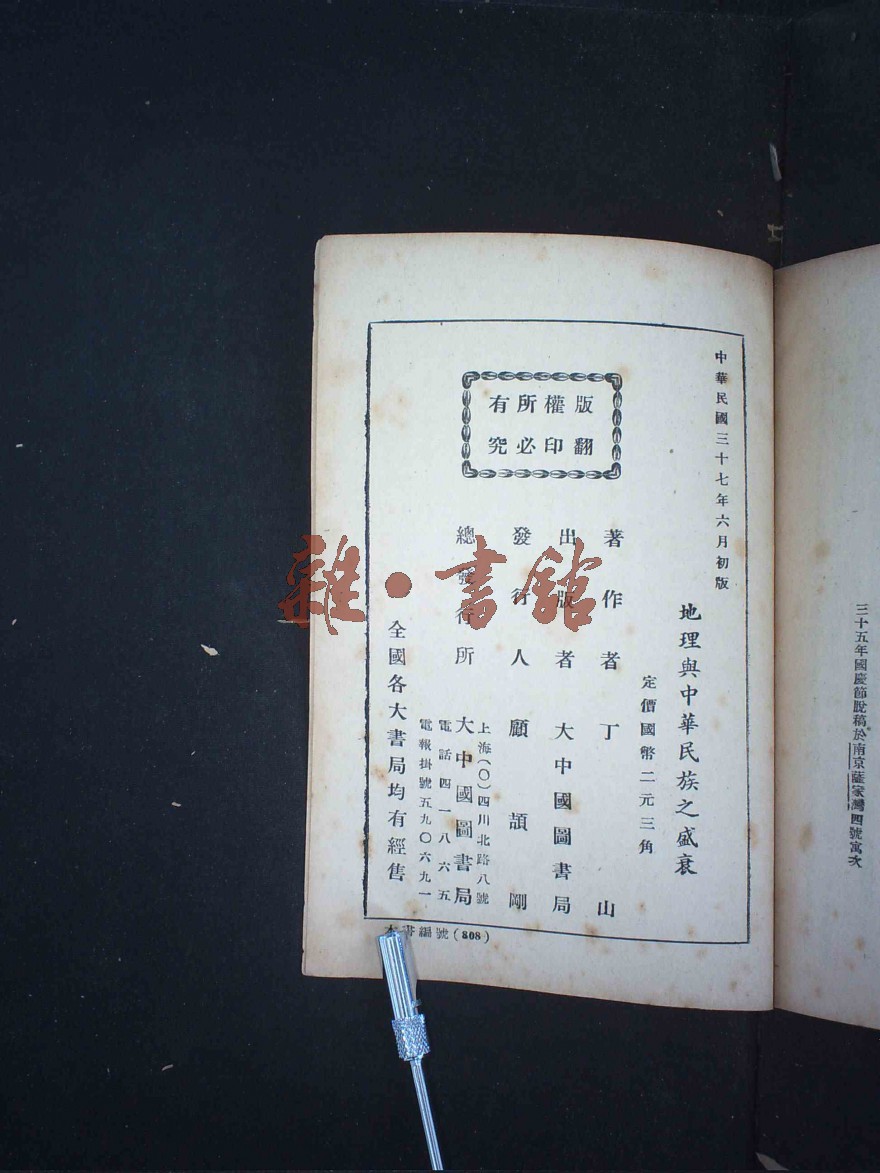 三十五年國慶節脫稿於南京薩家灣四號寓次
中華民國三十七年六月初版
地理與中華民族之盛衰
定價國幣二元三角
版權所有
翻印必究
著作者 丁山
出版者 大中國圖書局
發行人 顧頡剛
總發行所 大中國圖書局
上海(〇)四川北路八號
電話四一八六五
電報掛號五九〇六九一
全國各大書局均有經售
本書編號(808)
雜·書館